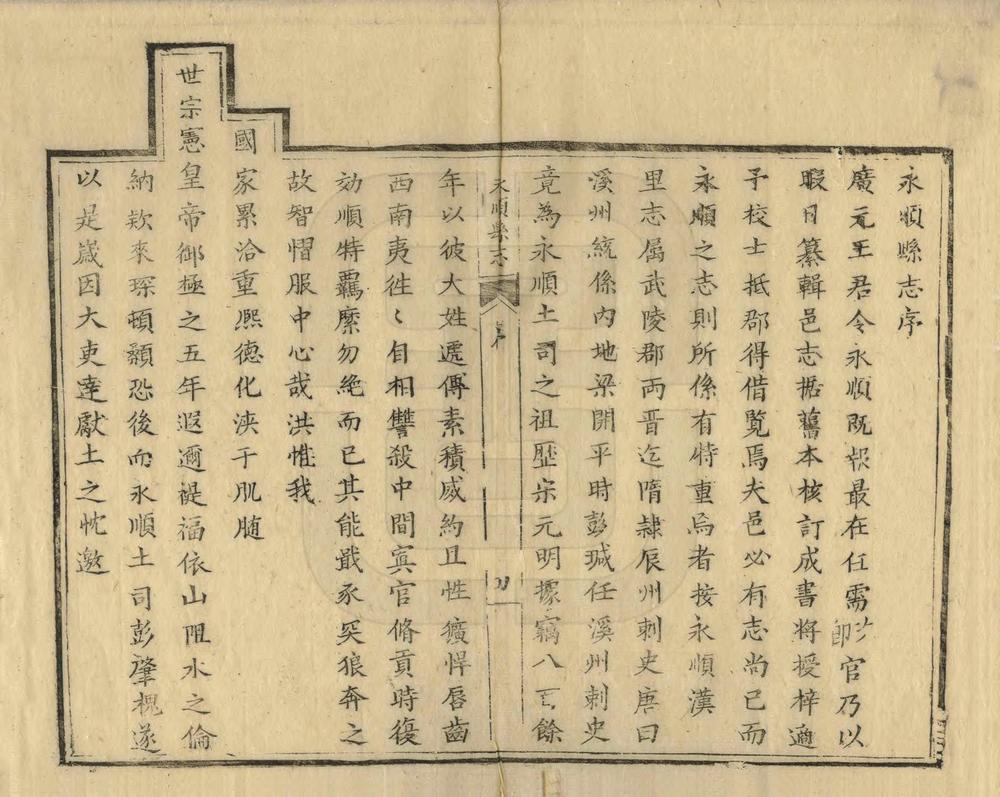 永順縣志序
廣元王君令永順既報最在任需部官乃以
暇日纂輯邑志据舊本核訂成書將授梓適
予校士抵郡得借覽焉夫邑必有志尚已而
永順之志則所係有特重焉者按永順漢
里志屬武陵郡兩晋迄隋隸辰州刺史唐曰
溪州統係內地梁開平時彭瑊任溪州刺史
竟為永順土司之祖歷宋元明據竊八百餘
永順縣志
序
年以彼大姓遞傳素積威約且性獷悍唇齒
西南夷徃〻自相讐殺中間寘官脩貢時復
効順特羈縻勿絕而已其能戢豕突狼奔之
故智慴服中心哉洪惟我
國家累洽重熙德化浹于肌随
世宗憲皇帝御極之五年遐邇禔福依山阻水之倫
納欵來琛頓顙恐後而永順土司彭肇槐遂
以是歲因大吏達獻土之忱邀